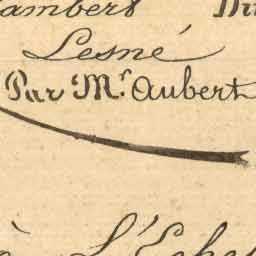 Lambert
Lesné
Par Mr. Aubert
à L'Eche